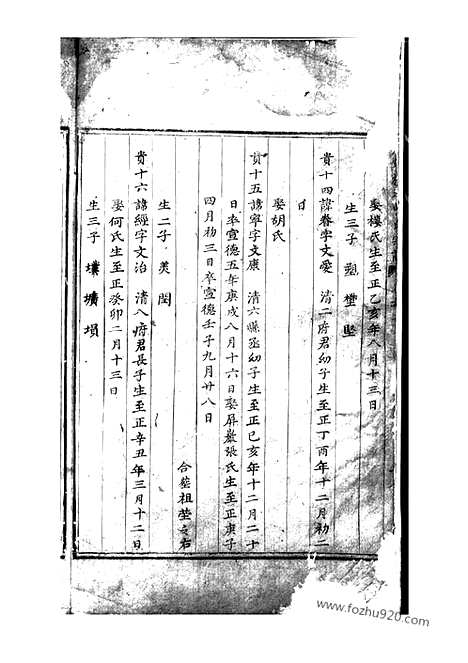 娶楼氏生至正乙亥年八月十三日
生三子 塑 壁 坚
貴十四諱眷字文愛 清二府君幼子生至正丁酉年十二月初二
日
娶胡氏
貴十五諱寧字文康 清六縣丞幼子生至正己亥年十二月二十
日卒宣德五年庚戌八月十六日娶屏巖張氏生至正庚子
四月初三日卒宣德壬子九月廿八日
合塟祖塋之右
生二子 美 閏
貴十六諱經字文治 清八府君長子生至正辛丑年三月十二日
娶何氏生至正癸卯二月十三日
生三子 墣 壙 塤
www.fozhu920.com